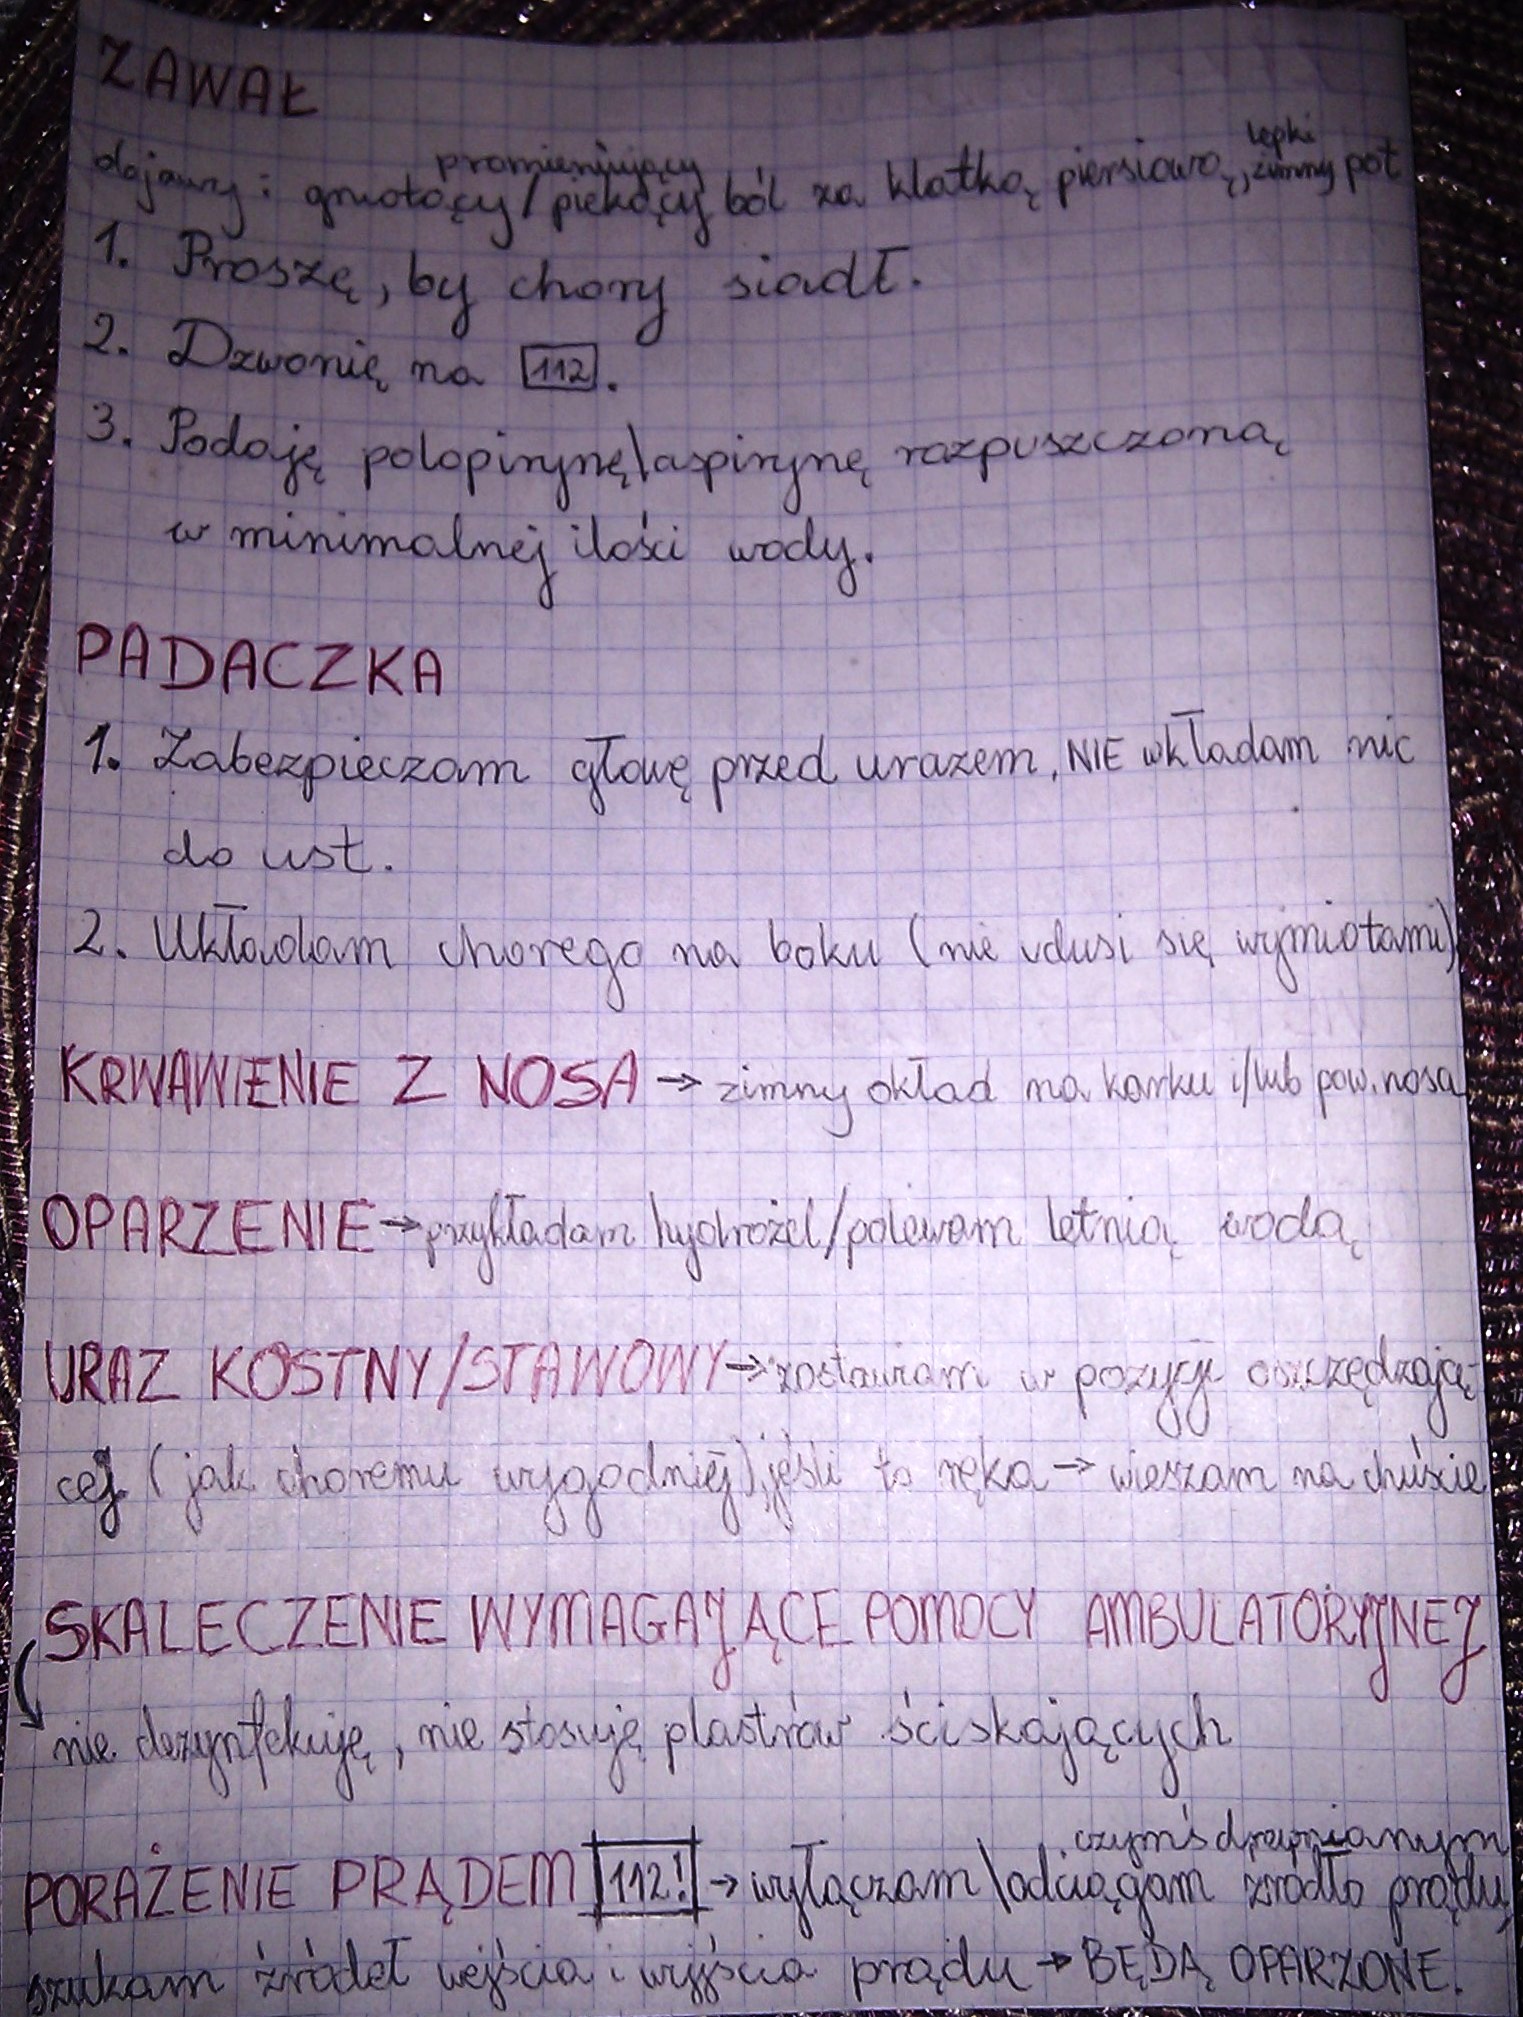 ZAWAŁ
promieniujący lepki
dojawy: gniotący/piekący ból za klatką piersiową, zimny pot
1. Proszę, by chory siadł.
2. Dzwonię na 112.
3. Podaję polopirynę\aspirynę rozpuszczoną
w minimalnej ilości wody.
PADACZKA
1. Zabezpieczam głowę przed urazem, NIE wkładam nic
do ust.
2. Układam chorego na boku (nie udusi się wymiotami)
KRWAWIENIE Z NOSA → zimny okład na karku i/lub pow. nosa
OPARZENIE → przykładam hydrożel/polewam letnią wodą
URAZ KOSTNY/STAWOWY → zostawiam w pozycji oszczędzają-
cej (jak choremu wygodniej), jeśli to ręka → wieszam na chuście
SKALECZENIE WYMAGAJĄCE POMOCY AMBULATORYJNEJ
nie dezynfekuję, nie stosuję plastrów ściskających
czymś drewnianym
PORAŻENIE PRĄDEM 112! → wyłączam\odciągam źródło prądu,
szukam źródeł wejścia i wyjścia prądu → BĘDĄ OPARZONE.